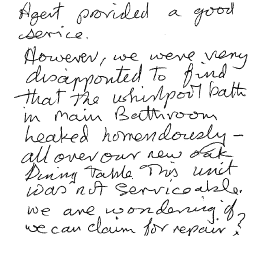 Agent provided a good
service.
However, we were very
disappointed to find
that the whirlpool bath
in main Bathroom
leaked horrendously –
all over our new oak
Dining Table This unit
was not serviceable.
we are wondering if
we can claim for repair?